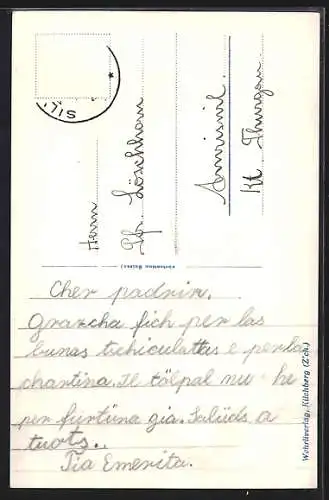 SILS
Herrn
Pfr. Löschhorn
Amriswil.
Kt. Thurgau.
Cher padrin.
Grazcha fich per las
bunas tschiculattas e per la
chartina. Il tölpal nu he
per furtüna gia. Salüds a
tuots..
Tia Emerita.
Wehrliverlag, Kilchberg (Zch.)